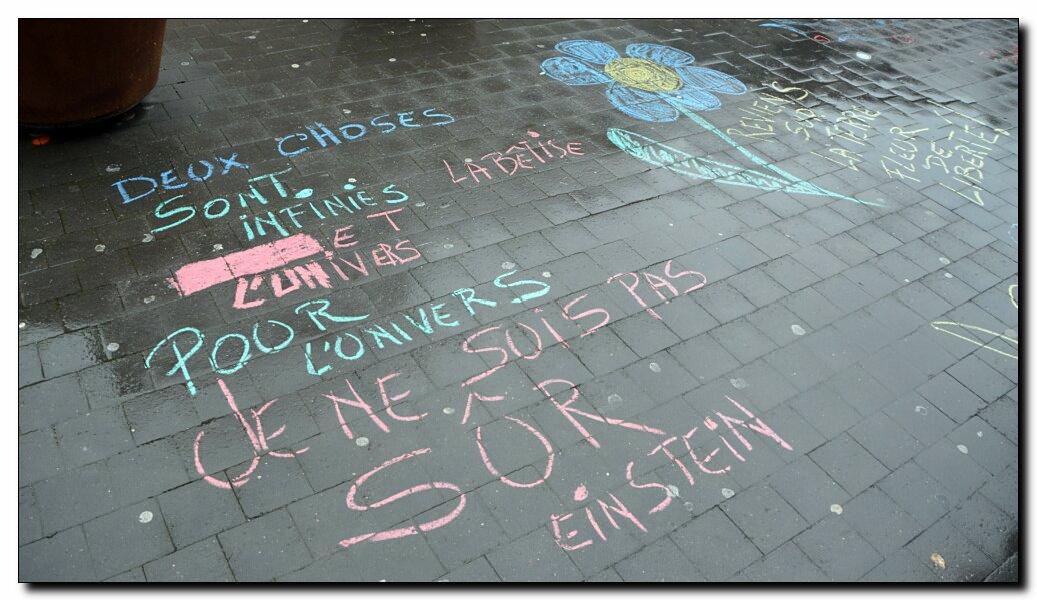 DEUX CHOSES
SONT
INFINIES
LA BÊTISE
ET
L'UNIVERS
POUR
L'UNIVERS
JE NE SOIS PAS
SÛR
EINSTEIN
REVIENS
SUR
LA TERRE
FLEUR
DE LA
LIBERTÉ!